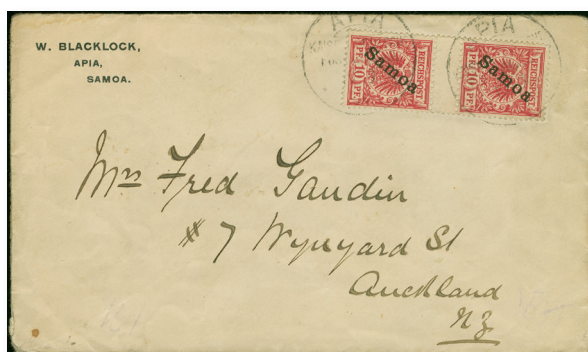 W. BLACKLOCK,
APIA,
SAMOA.
APIA
PIA
REICHSPOST
Samoa
PF. 10 PF.
REICHSPOST
Samoa
PF. 10 PF.
Mrs Fred Gaudin
# 7 Wynyard St
Auckland
NZ